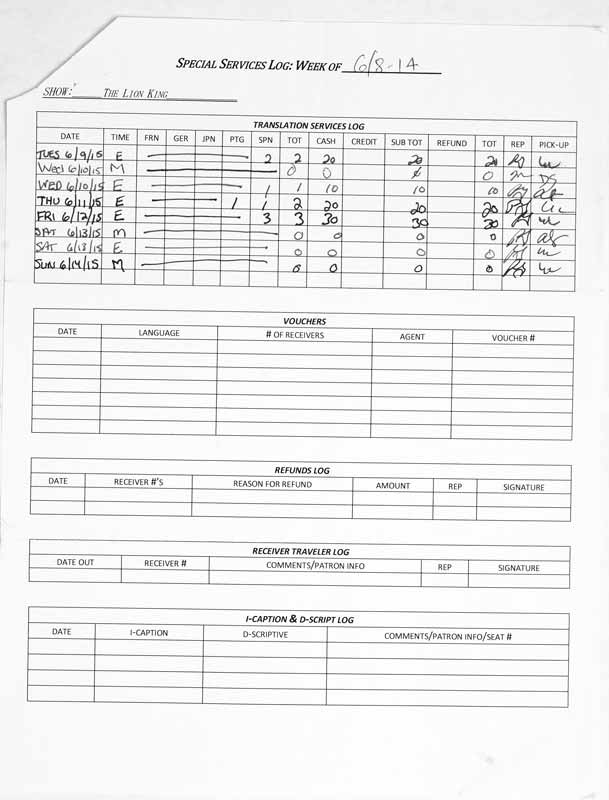 SPECIAL SERVICES LOG: WEEK OF 6/8-14
SHOW: THE LION KING
TRANSLATION SERVICES LOG
DATE TIME FRN GER JPN PTG SPN TOT CASH CREDIT SUB TOT REFUND TOT REP PICK-UP
TUES 6/9/15 E 2 2 20 20 20
WED 6/10/15 M 0 0 0
WED 6/10/15 E 1 1 10 10 10
THU 6/11/15 E 1 1 2 20 20 20
FRI 6/12/15 E 3 3 30 30 30
SAT 6/13/15 M 0 0 0 0
SAT 6/13/15 E 0 0 0 0
SUN 6/14/15 M 0 0 0 0
VOUCHERS
DATE LANGUAGE # OF RECEIVERS AGENT VOUCHER #
REFUNDS LOG
DATE RECEIVER #'S REASON FOR REFUND AMOUNT REP SIGNATURE
RECEIVER TRAVELER LOG
DATE OUT RECEIVER # COMMENTS/PATRON INFO REP SIGNATURE
I-CAPTION & D-SCRIPT LOG
DATE I-CAPTION D-SCRIPTIVE COMMENTS/PATRON INFO/SEAT #